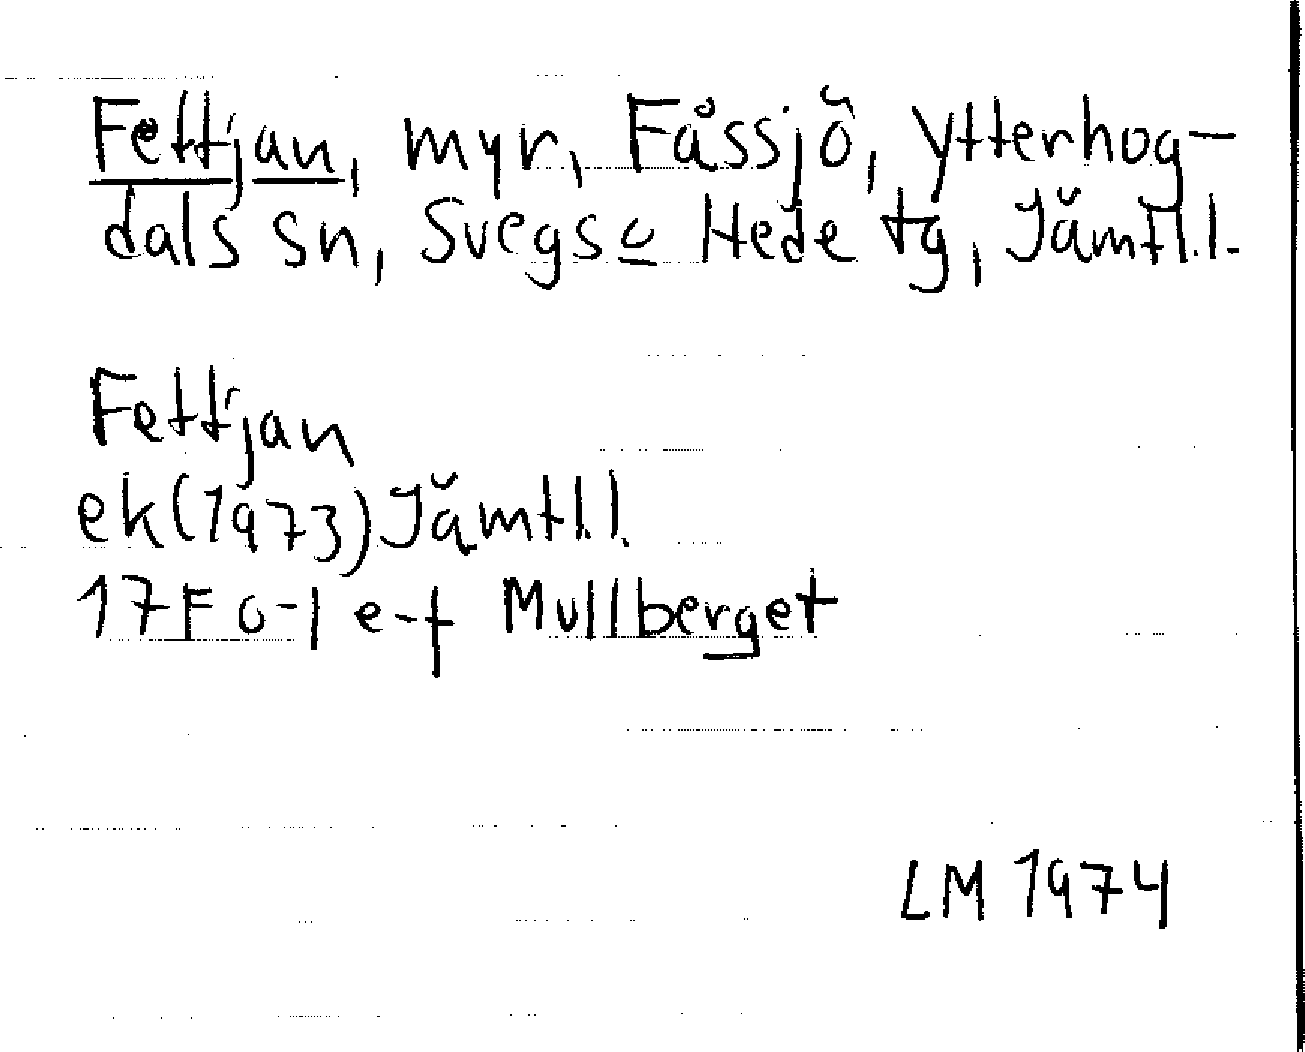 Fettjan, myr, Fåssjö, Ytterhog-
dals sn, Svegs o Hede tg, Jämtl.l.
Fettjan
ek(1973) Jämtl.l.
17F o-l e-f Mullberget
LM 1974